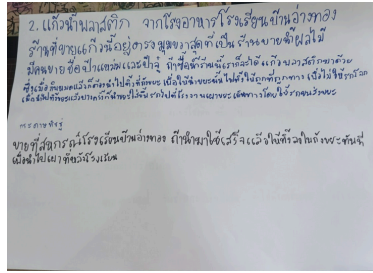 2. แก้วน้ำพลาสติก จากโรงอาหารโรงเรียนบ้านอ่างทอง
ร้านที่ขายแก้วนี้อยู่ตรงมุมขวาสุดที่เป็นร้านขายน้ำผลไม้
มีคนขายชื่อป้าแหม่มและป้าจู ถ้าซื้อน้ำร้านนี้เราก็จะได้แก้วพลาสติกมาด้วย
ซึ่งเมื่อกินหมดแล้วก็ต้องนำไปทิ้งที่ถังขยะ เพื่อให้
กระดาษทิชชู่
ขายที่สหกรณ์โรงเรียนบ้านอ่างทอง ถ้านำมาใช้เสร็จแล้วให้ทิ้งลงในถังขยะทันที
เพื่อนำไปเผาที่หลังโรงเรียน